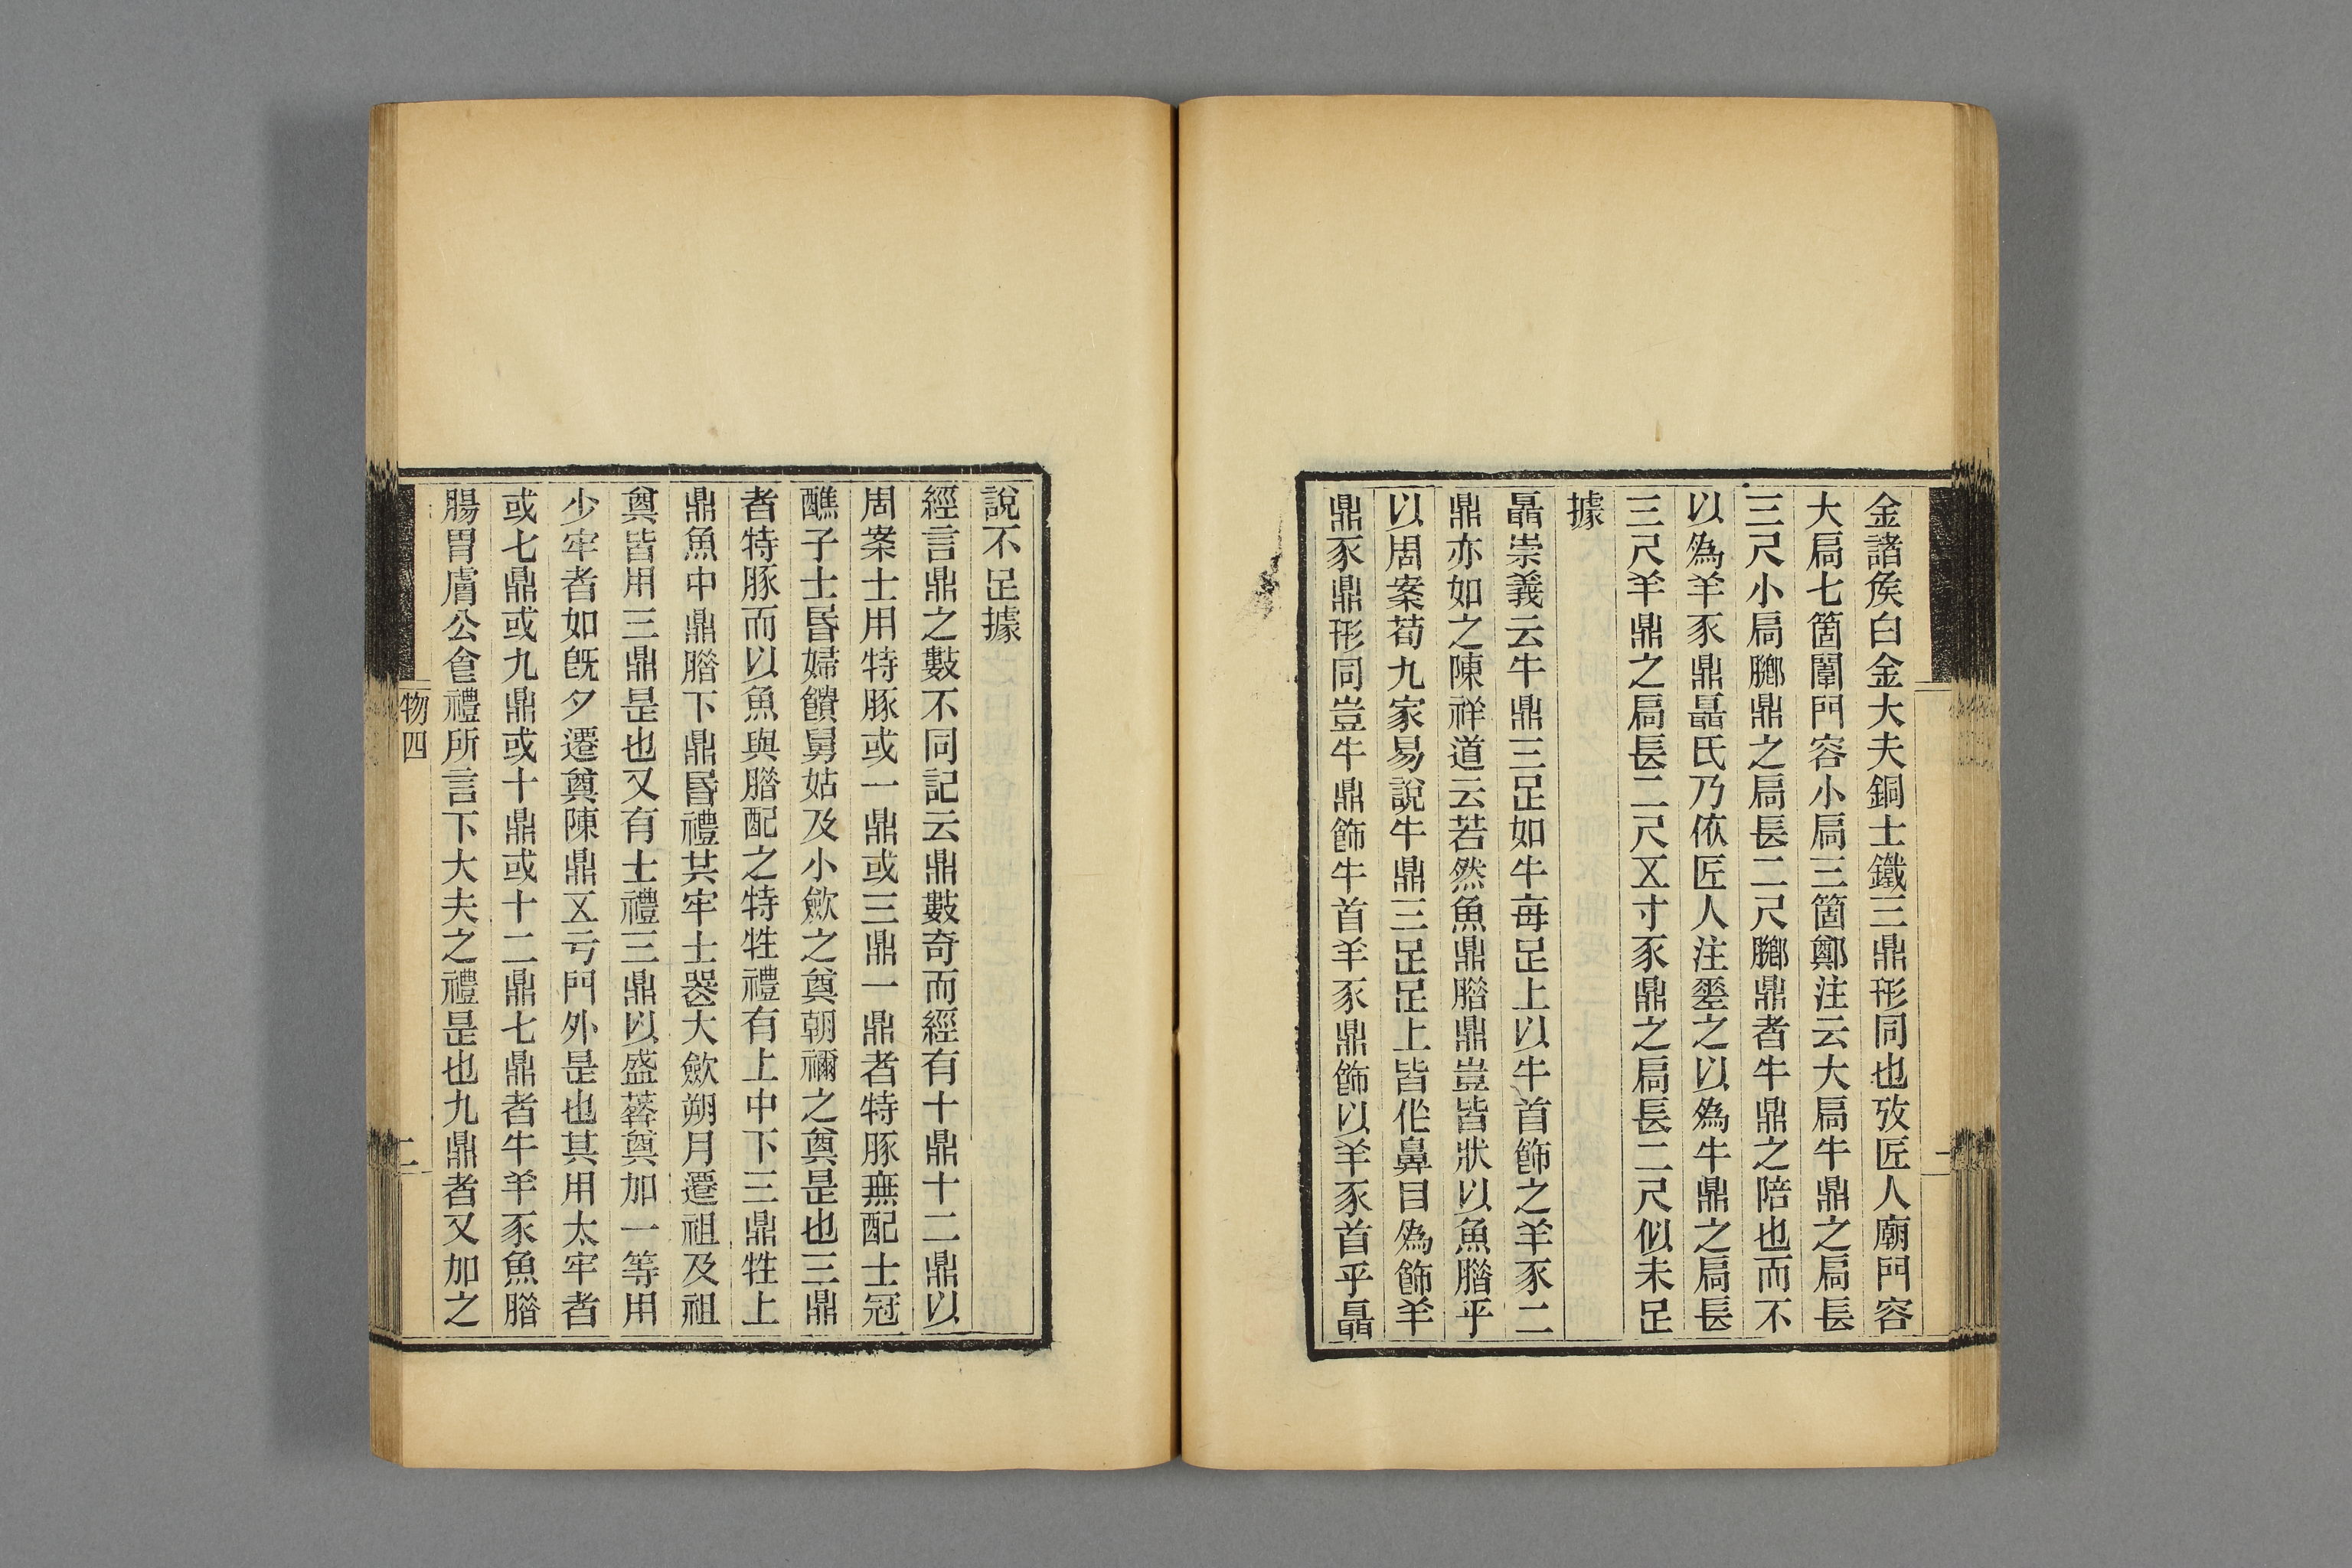 金諸矦白金大夫銅士鐵三鼎形同也攷匠人廟門容
大扃七箇闈門容小扃三箇鄭注云大扃牛鼎之扃長
三尺小扃膷鼎之扃長二尺膷鼎者牛鼎之陪也而不
以爲羊豕鼎聶氏乃依匠人注差之以爲牛鼎之扃長
三尺羊鼎之扃長二尺五寸豕鼎之扃長二尺似未足
據
聶崇義云牛鼎三足如牛每足上以牛首飾之羊豕二
鼎亦如之陳祥道云若然魚鼎腊鼎豈皆狀以魚腊乎
以周案荀九家易說牛鼎三足足上皆作鼻目爲飾羊
鼎豕鼎形同豈牛鼎飾牛首羊豕鼎飾以羊豕首乎聶
說不足據
經言鼎之數不同記云鼎數奇而經有十鼎十二鼎以
周案士用特豚或一鼎或三鼎一鼎者特豚無配士冠
醮子士昏婦饋舅姑及小斂之奠朝禰之奠是也三鼎
者特豚而以魚與腊配之特牲禮有上中下三鼎牲上
鼎魚中鼎腊下鼎昏禮共牢士喪大斂朔月遷祖及祖
奠皆用三鼎是也又有士禮三鼎以盛葬奠加一等用
少牢者如旣夕遷奠陳鼎五于門外是也其用太牢者
或七鼎或九鼎或十鼎或十二鼎七鼎者牛羊豕魚腊
腸胃膚公食禮所言下大夫之禮是也九鼎者又加之
物四
二